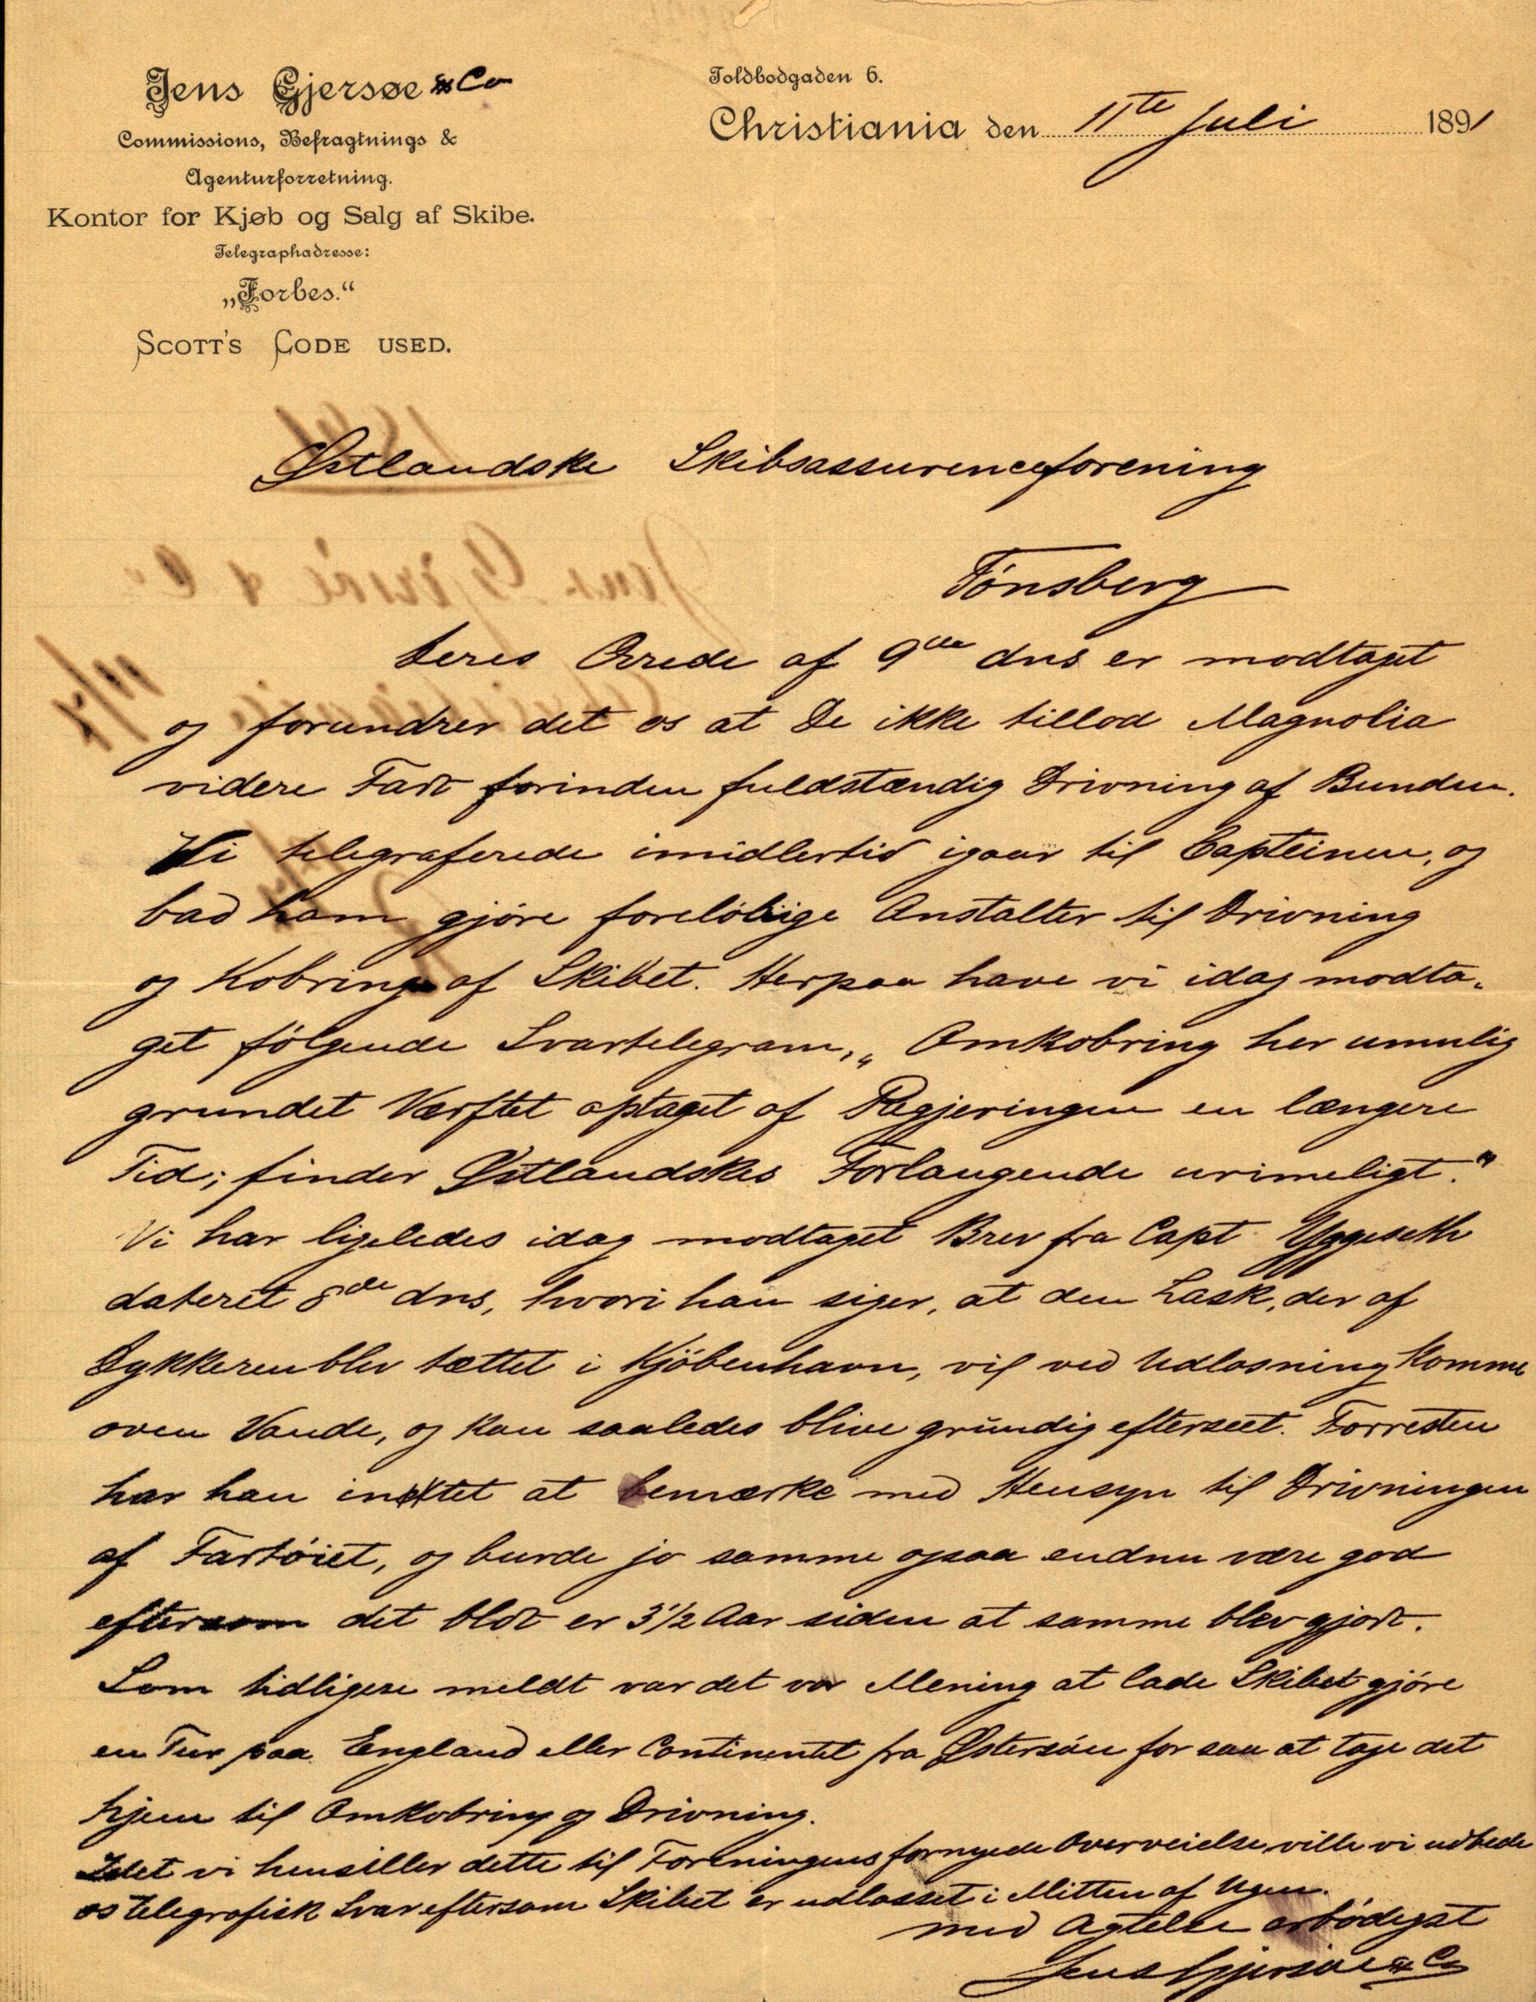 Jens Gjersøe & Co
Commissions, Befragtnings &
Agenturforretning.
Kontor for Kjøb og Salg af Skibe.
Telegraphadresse:
„Forbes.“
SCOTT'S CODE USED.
Toldbodgaden 6.
Christiania den 11te Juli 1891
Østlandske Skibsassuranceforening
Tønsberg
Deres Ærede af 9de dns er modtaget
og forundrer det os at De ikke tillod Magnolia
videre Fart forinden fuldstændig Drivning af Bunden.
Vi telegraferede imidlertid igaar til Capteinen, og
bad ham gjøre foreløbige Anstalter til Drivning
og Kobring af Skibet. Herpaa have vi idag modta-
get følgende Svartelegram, „Omkobring her umulig
grundet Værftet optaget af Regjeringen en længere
Tid; finder Østlandskes Forlangende urimeligt.“
Vi har ligeledes idag modtaget Brev fra Capt Yggeseth
dateret 8de dns, hvori han siger, at den Læsk, der af
Dykkeren blev tættet i Kjøbenhavn, vil ved Udlosning komme
oven Vande, og kan saaledes blive grundig efterseet. Forresten
har han intet at bemærke med Hensyn til Drivningen
af Fartøiet, og burde jo samme ogsaa endnu være god
eftersom det blot er 3 1/2 Aar siden at samme blev gjort.
Som tidligere meldt var det vor Mening at lade Skibet gjøre
en Tur paa England eller Continentet fra Østersøen for saa at tage det
hjem til Omkobring og Drivning.
Idet vi henstiller dette til Foreningens fornyede Overveielse ville vi udbede
os telegrafisk Svar eftersom Skibet er udlosset i Mitten af Ugen.
med Agtelse ærbødigst
Jens Gjersøe & Co
1891
Jens Gjersøe & Co
Christiania
11/7